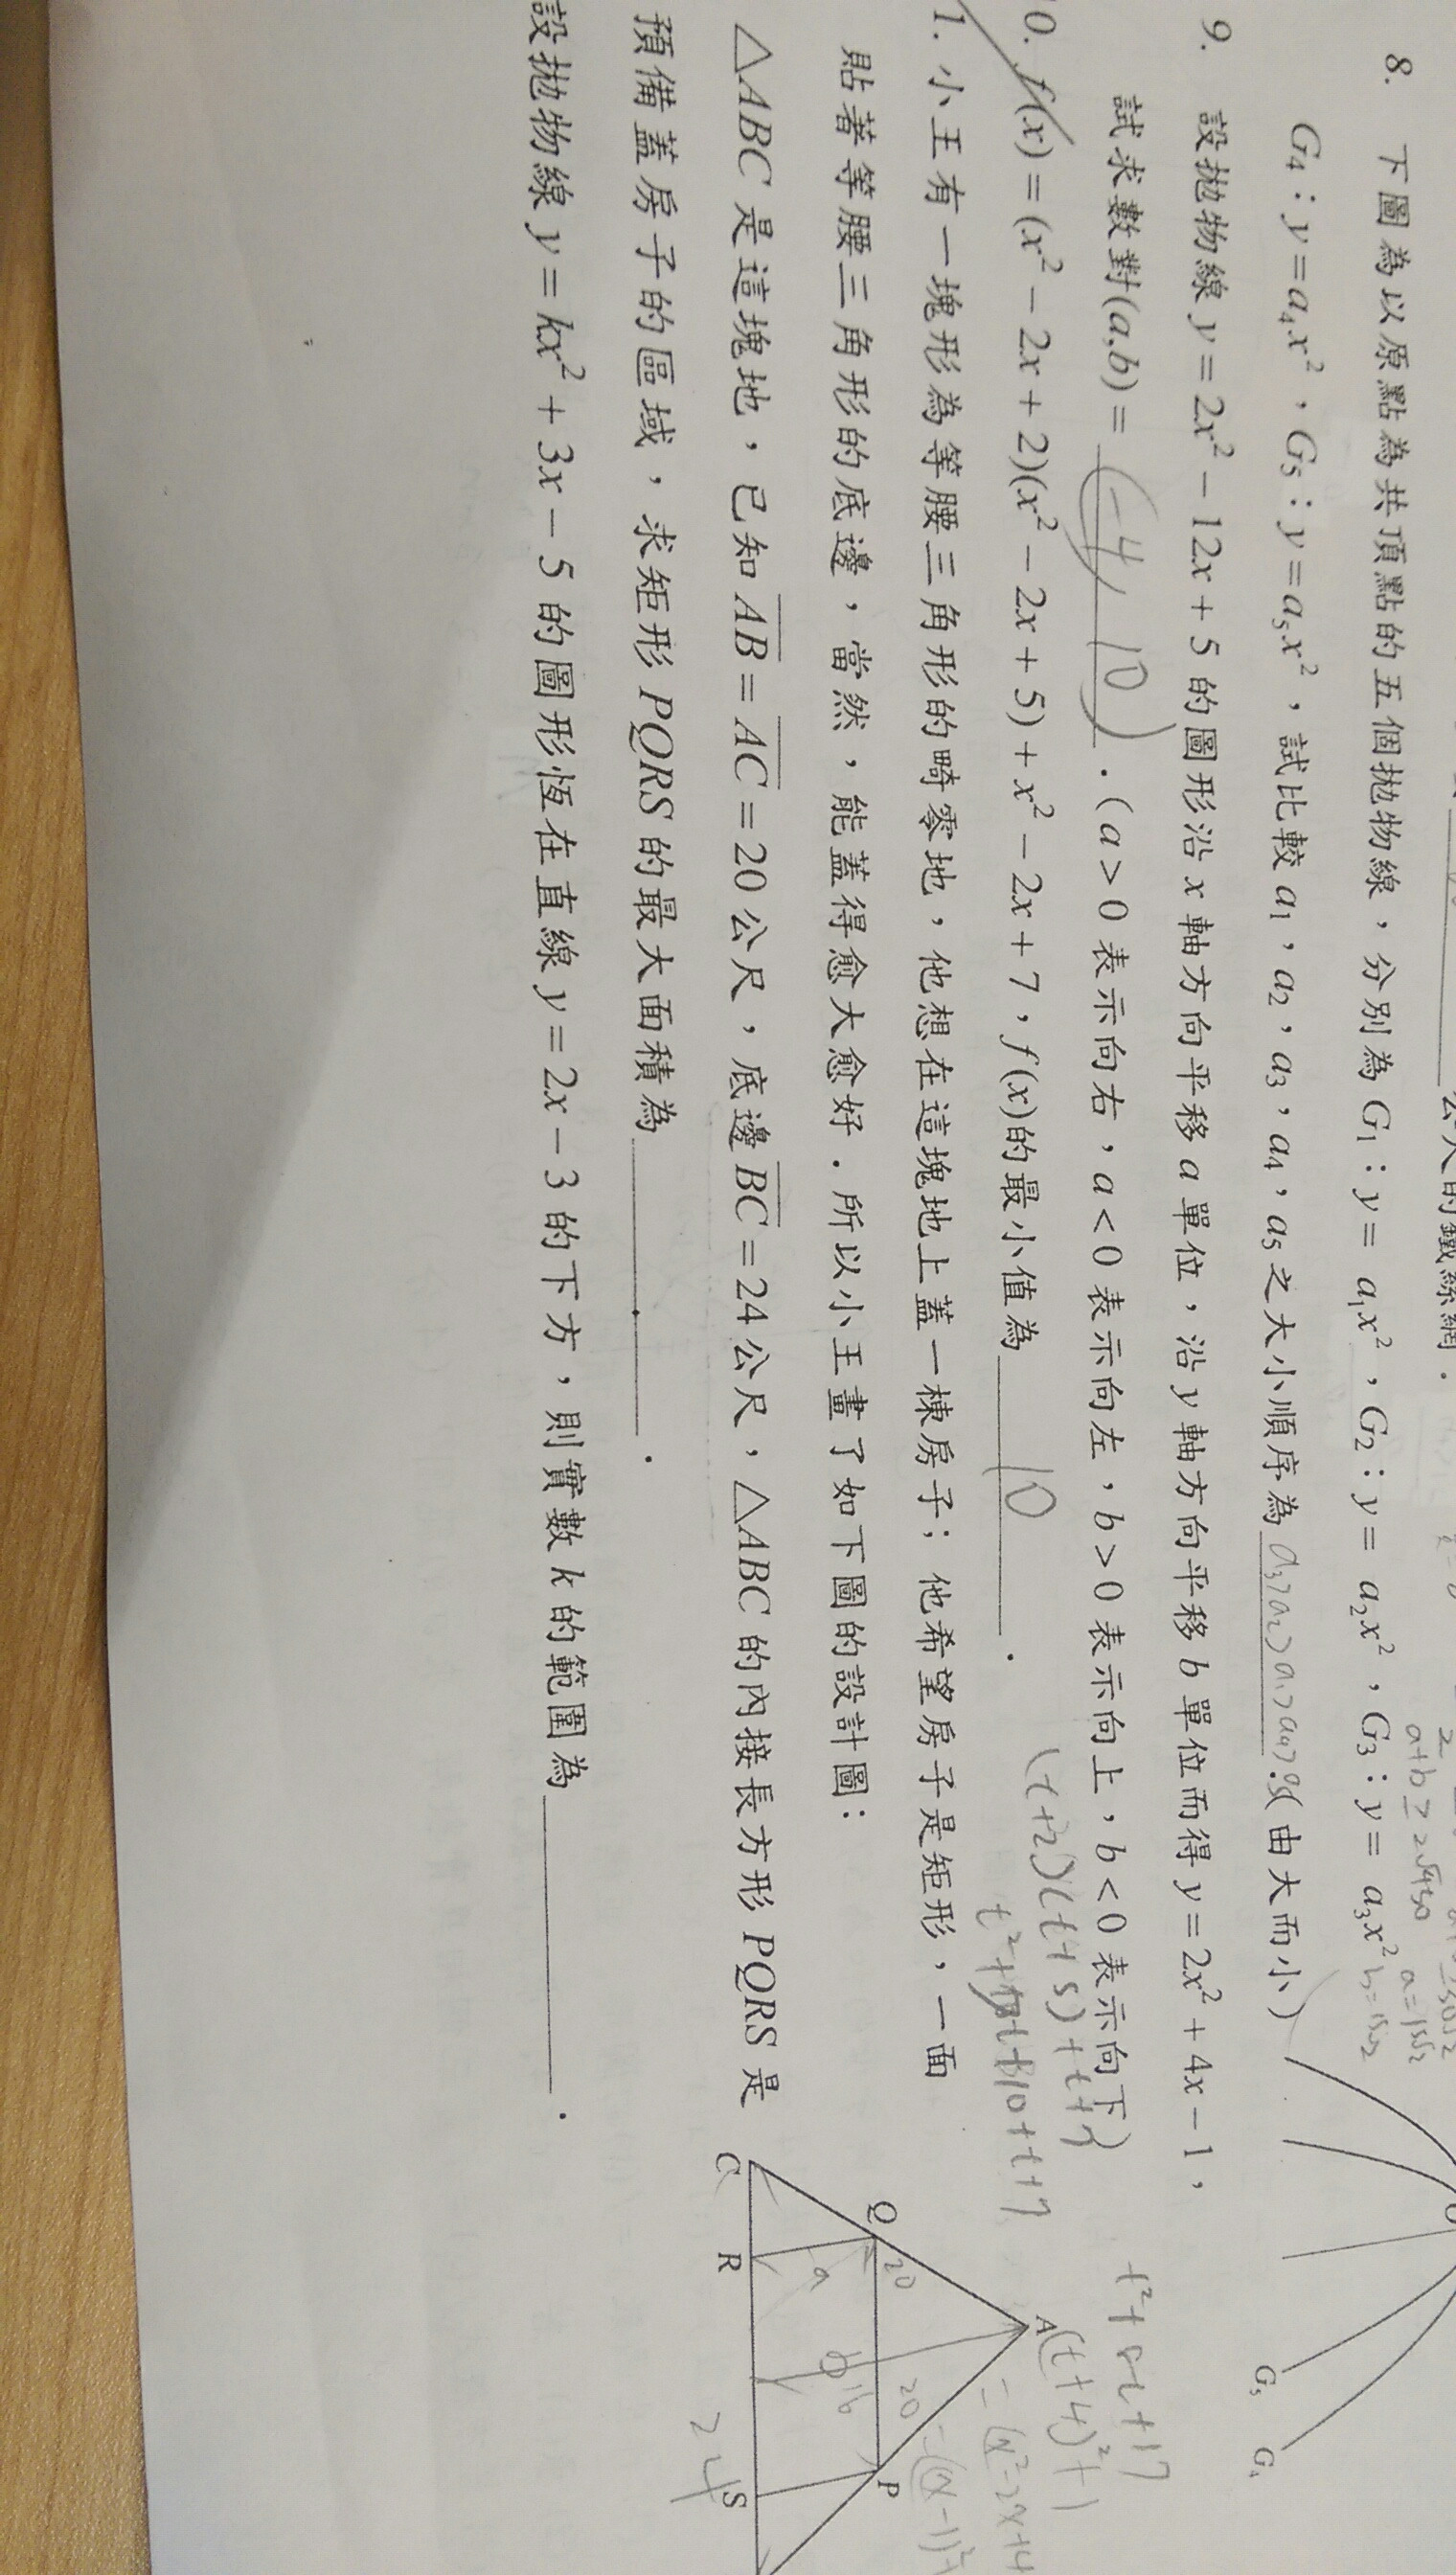 公尺的鐵絲網.
8. 下圖為以原點為共頂點的五個拋物線，分別為 G₁：y = a₁x²，G₂：y = a₂x²，G₃：y = a₃x²
G₄：y=a₄x²，G₅：y=a₅x²，試比較 a₁，a₂，a₃，a₄，a₅ 之大小順序為 (由大而小)
9. 設拋物線 y = 2x² − 12x + 5 的圖形沿 x 軸方向平移 a 單位，沿 y 軸方向平移 b 單位而得 y = 2x² + 4x − 1，
試求數對(a,b) = (-4, 10) .（a > 0 表示向右，a < 0 表示向左，b > 0 表示向上，b < 0 表示向下）
10. f(x) = (x² − 2x + 2)(x² − 2x + 5) + x² − 2x + 7，f(x)的最小值為 10 .
(t+2)(t+5)+t+7
1. 小王有一塊形為等腰三角形的畸零地，他想在這塊地上蓋一棟房子；他希望房子是矩形，一面
貼著等腰三角形的底邊，當然，能蓋得愈大愈好．所以小王畫了如下圖的設計圖：
△ABC 是這塊地，已知 AB = AC = 20 公尺，底邊 BC = 24 公尺，△ABC 的內接長方形 PQRS 是
預備蓋房子的區域，求矩形 PQRS 的最大面積為 .
設拋物線 y = kx² + 3x − 5 的圖形恆在直線 y = 2x − 3 的下方，則實數 k 的範圍為 .
G₅
(t+4)²+1
A
Q
20
20
P
16
C
R
S
24